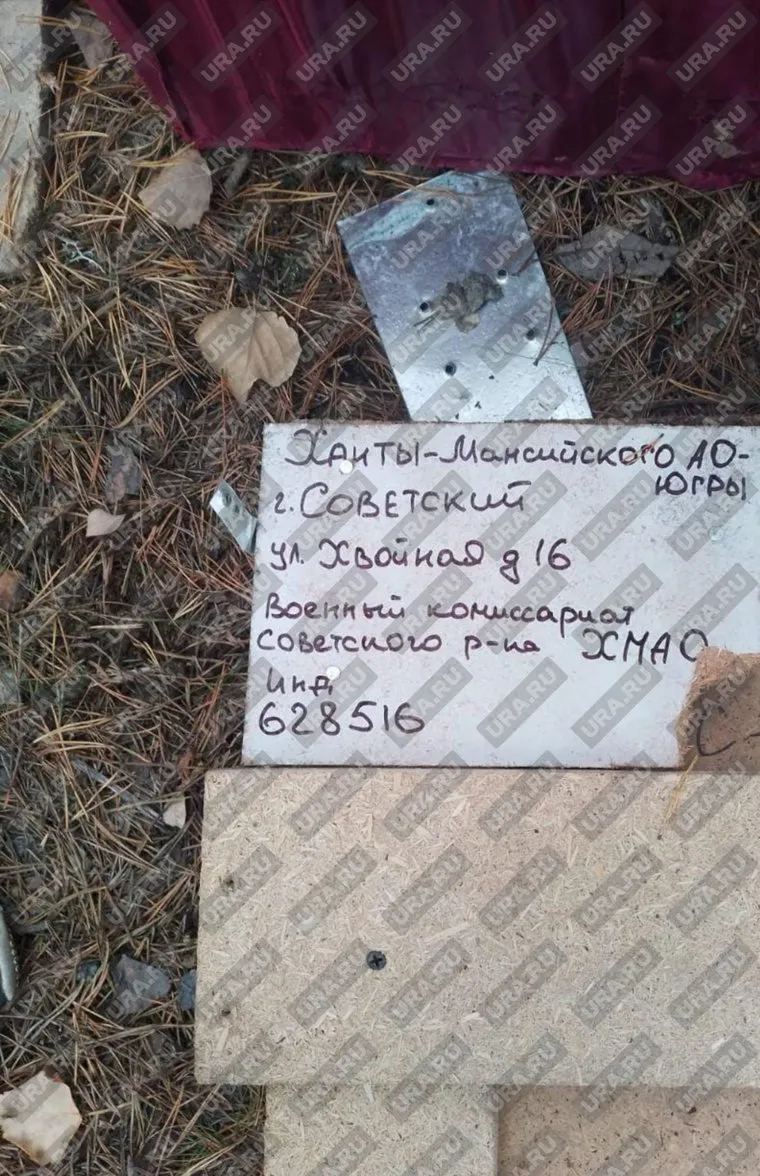 Ханты-Мансийского АО-
Югры
г. Советский
ул. Хвойная д 16
Военный комиссариат
Советского р-на ХМАО
инд
628516
URA.RU